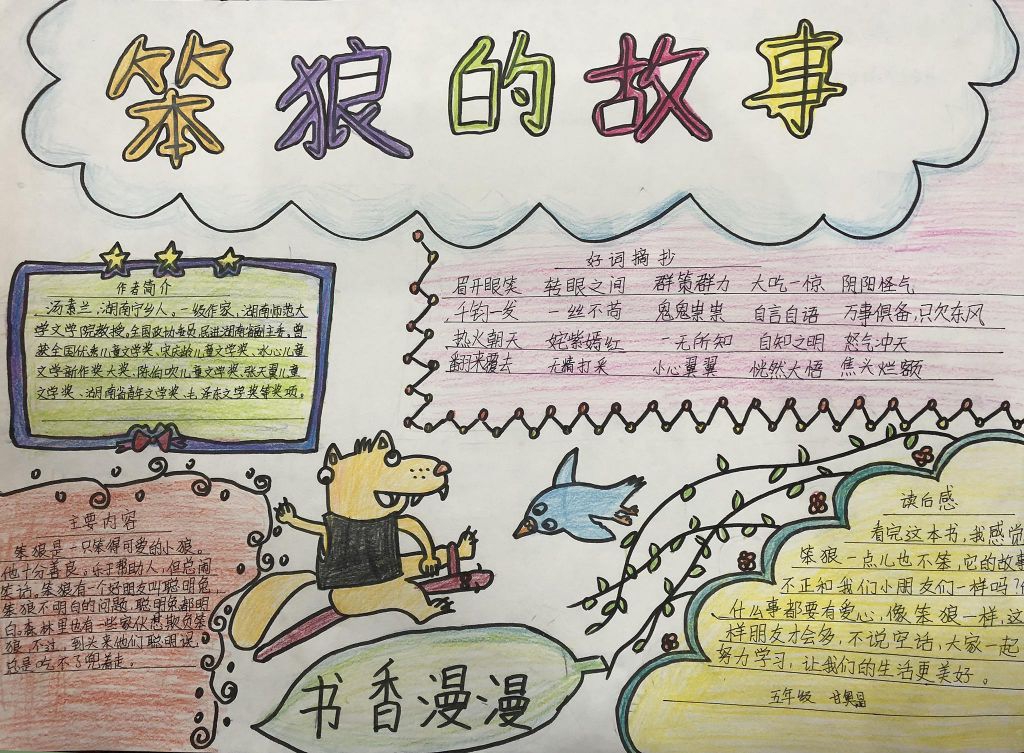 笨狼的故事
作者简介
汤素兰,湖南宁乡人。一级作家、湖南师范大
学文学院教授。全国政协委员,民进湖南省副主委。曾
获全国优秀儿童文学奖、宋庆龄儿童文学奖、冰心儿童
文学新作奖大奖、陈伯吹儿童文学奖、张天翼儿童
文学奖、湖南省青年文学奖、毛泽东文学奖等奖项。
好词摘抄
眉开眼笑 转眼之间 群策群力 大吃一惊 阴阳怪气
千钧一发 一丝不苟 鬼鬼祟祟 自言自语 万事俱备,只欠东风
热火朝天 姹紫嫣红 一无所知 自知之明 怒气冲天
翻来覆去 无精打采 小心翼翼 恍然大悟 焦头烂额
主要内容
笨狼是一只笨得可爱的小狼。
他十分善良、乐于帮助人,但总闹
笑话。笨狼有一个好朋友叫聪明兔,
笨狼不明白的问题,聪明兔都明
白。森林里也有一些家伙想欺负笨
狼,不过,到头来他们聪明误,
总是吃不了兜着走。
书香漫漫
读后感
看完这本书,我感觉
笨狼一点儿也不笨,它的故事
不正和我们小朋友们一样吗?
什么事都要有爱心,像笨狼一样,这
样朋友才会多,不说空话,大家一起
努力学习,让我们的生活更美好。
五年级